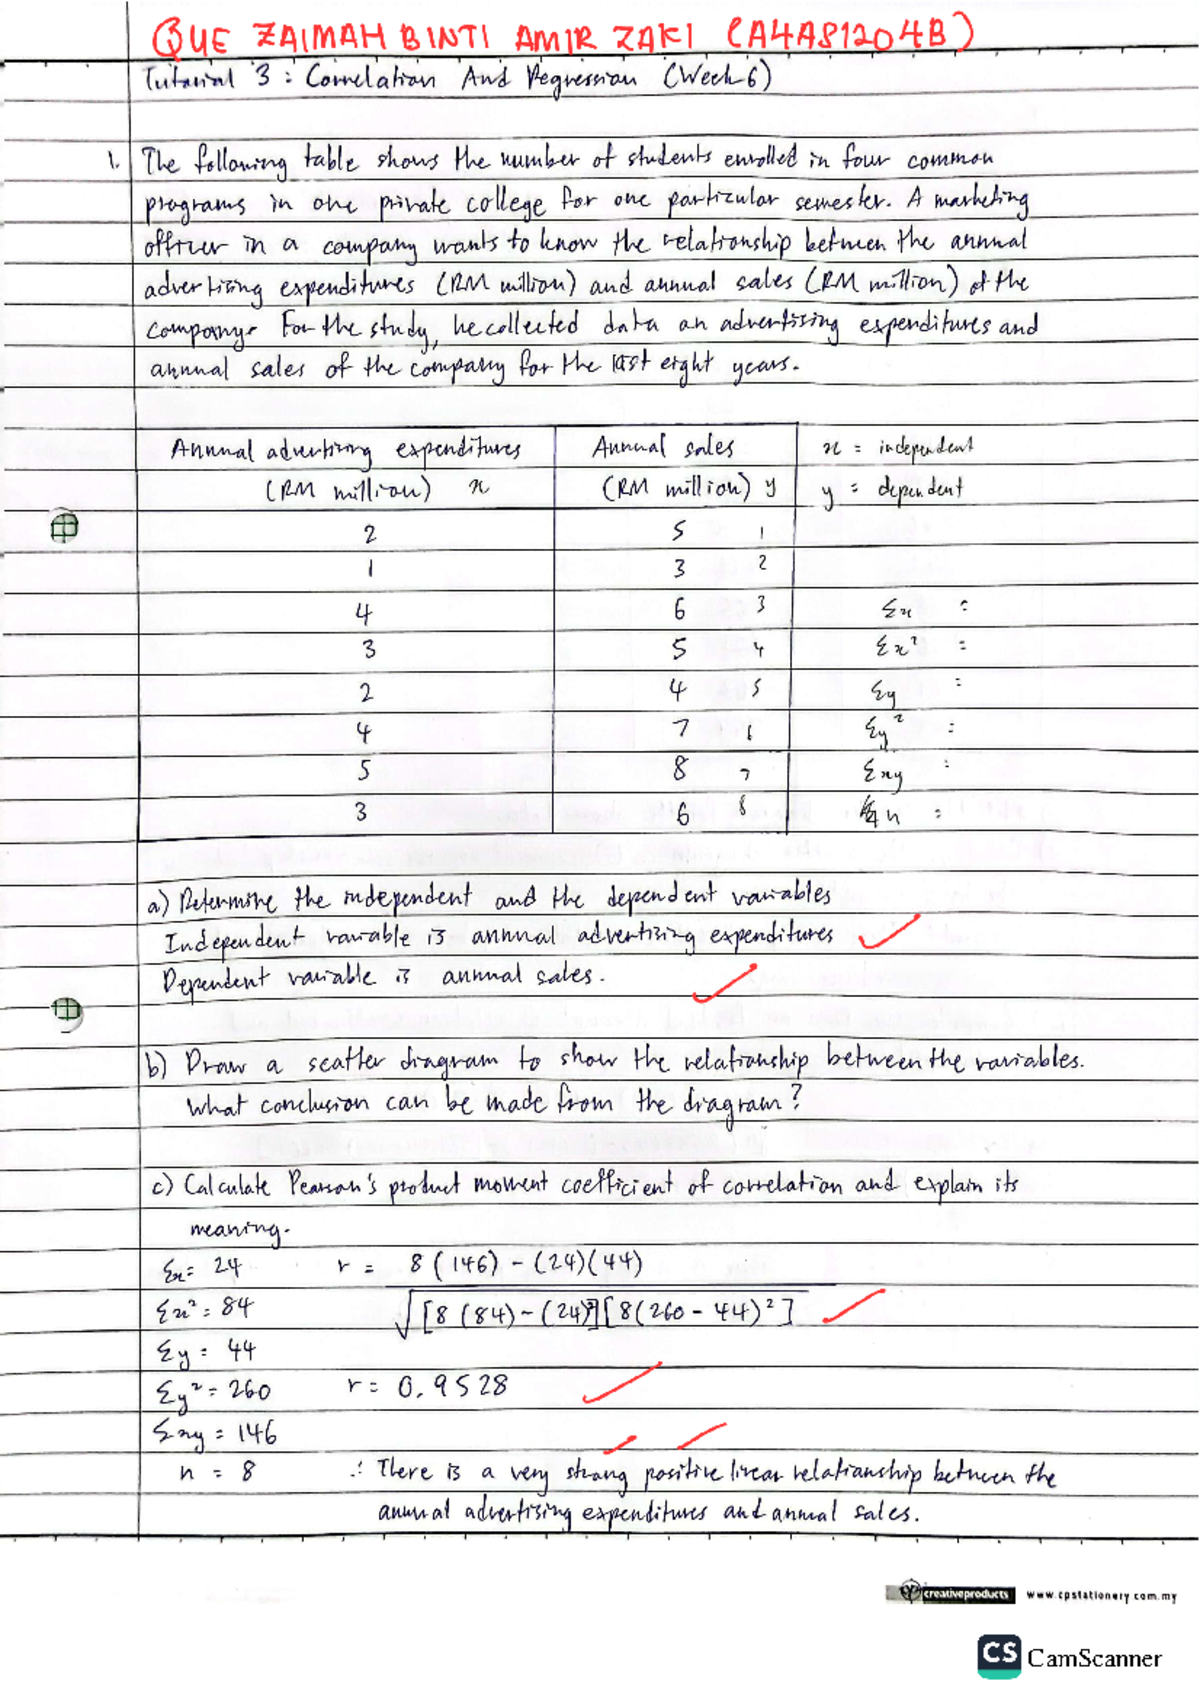 QUE ZAIMAH BINTI AMIR ZAKI (A4A81204B)
Tutorial 3 : Correlation And Regression (Week 6)
1. The following table shows the number of students enrolled in four common
programs in one private college for one particular semester. A marketing
officer in a company wants to know the relationship between the annual
advertising expenditures (RM million) and annual sales (RM million) of the
company. For the study, he collected data an advertising expenditures and
annual sales of the company for the last eight years.
Annual advertising expenditures Annual sales x = independent
(RM million) x (RM million) y y = dependent
2 5 1
1 3 2
4 6 3 Σx :
3 5 4 Σx² =
2 4 5 Σy =
4 7 6 Σy² =
5 8 7 Σxy =
3 6 8 n =
a) Determine the independent and the dependent variables
Independent variable is annual advertising expenditures
Dependent variable is annual sales.
b) Draw a scatter diagram to show the relationship between the variables.
What conclusion can be made from the diagram?
c) Calculate Pearson's product moment coefficient of correlation and explain its
meaning.
Σx = 24 r = 8(146) - (24)(44)
Σx² = 84 √[8(84) - (24)²][8(260 - 44)²]
Σy = 44
Σy² = 260 r = 0.9528
Σxy = 146
n = 8 ∴ There is a very strong positive linear relationship between the
annual advertising expenditures and annual sales.
cp creativeproducts www.cpstationery.com.my
CS CamScanner